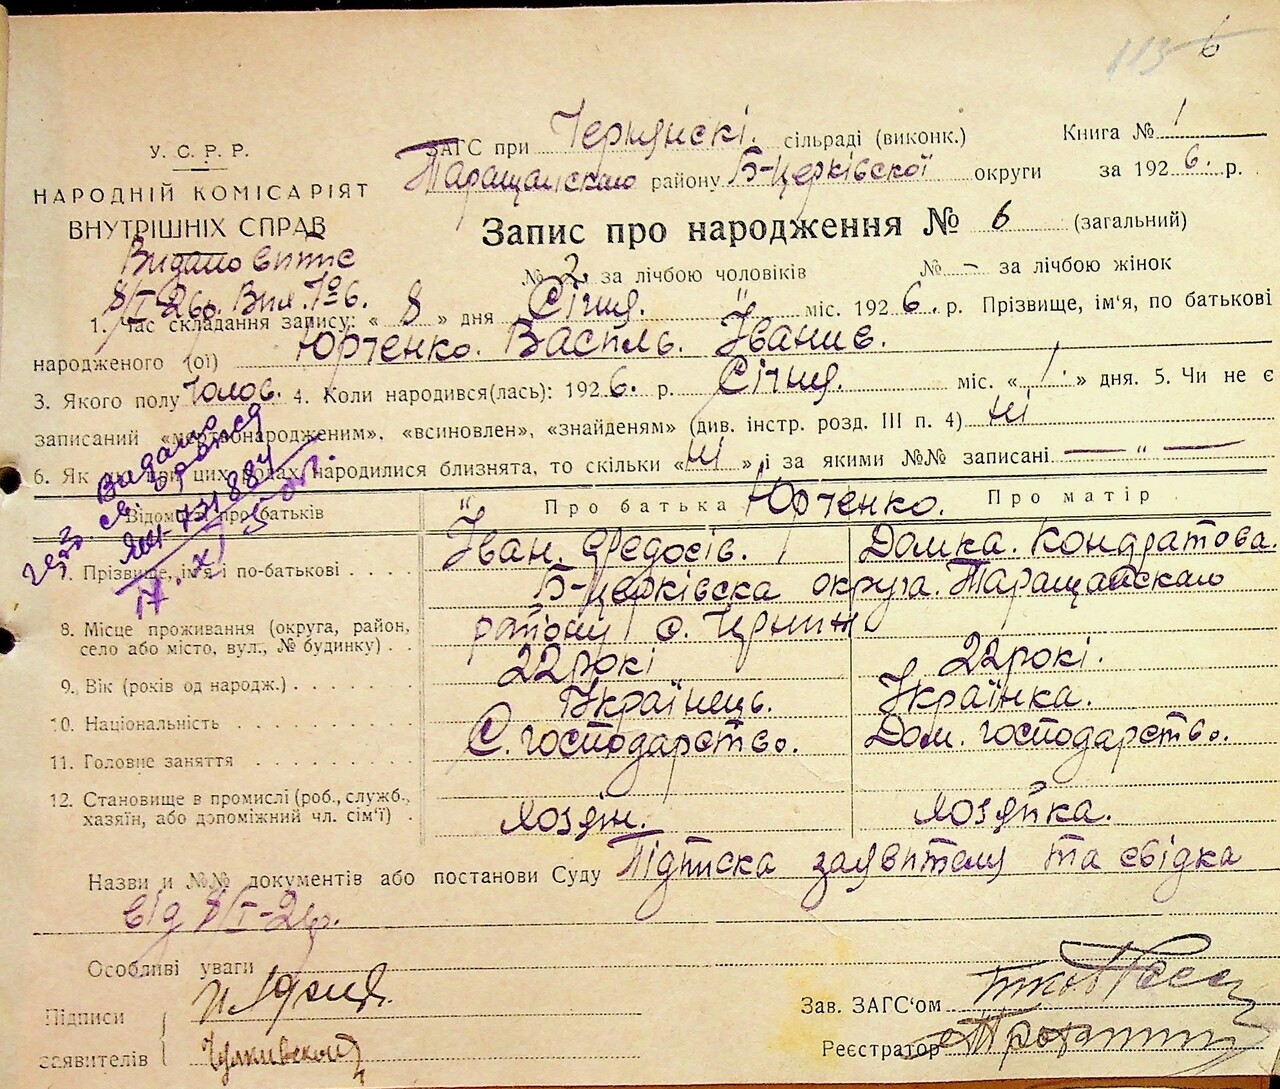 113 6
У. С. Р. Р.
НАРОДНІЙ КОМІСАРІЯТ
ВНУТРІШНІХ СПРАВ
ЗАГС при Чернинскі. сільраді (виконк.) Книга № 1
Таращанскаю району Б-Церківскоі округи за 1926. р.
Запис про народження № 6 (загальний)
№ 2. за лічбою чоловіків № – за лічбою жінок
Видано витяг
8/I-26р. Вип. №6.
1. Час складання запису: « 8 » дня Січня. міс. 1926. р. Прізвище, ім'я, по батькові
народженого (ої) Юрченко. Василь. Іванив.
3. Якого полу Чолов. 4. Коли народився(лась): 1926. р. Січня. міс. «1.» дня. 5. Чи не є
записаний «мертвонародженим», «всиновлен», «знайденям» (див. інстр. розд. III п. 4) ні
6. Як що при цих родах народилися близнята, то скільки «ні» і за якими №№ записані — " —
Видано
св.
731884
Відомості про батьків Про батька Юрченко. Про матір
7. Прізвище, ім'я і по-батькові . . . . Іван. Федосів. Домка. Кондратова.
Б-Церківска округа. Таращанскаю
8. Місце проживання (округа, район,
село або місто, вул., № будинку) . . району с. Чернин
9. Вік (років од народж.) . . . . . . . 22 рокі 22 рокі.
10. Національність . . . . . . . . . Українець. Українка.
11. Головне заняття . . . . . . . . . С. господарство. Дом. господарство.
12. Становище в промислі (роб., служб.,
хазяїн, або допоміжний чл. сім'ї) . Хозяін. Хозяйка.
Назви и №№ документів або постанови Суду Підписка заявителя та свідка
від 8/I-26р.
Особливі уваги
Підписи
заявителів
Зав. ЗАГС'ом
Реєстратор